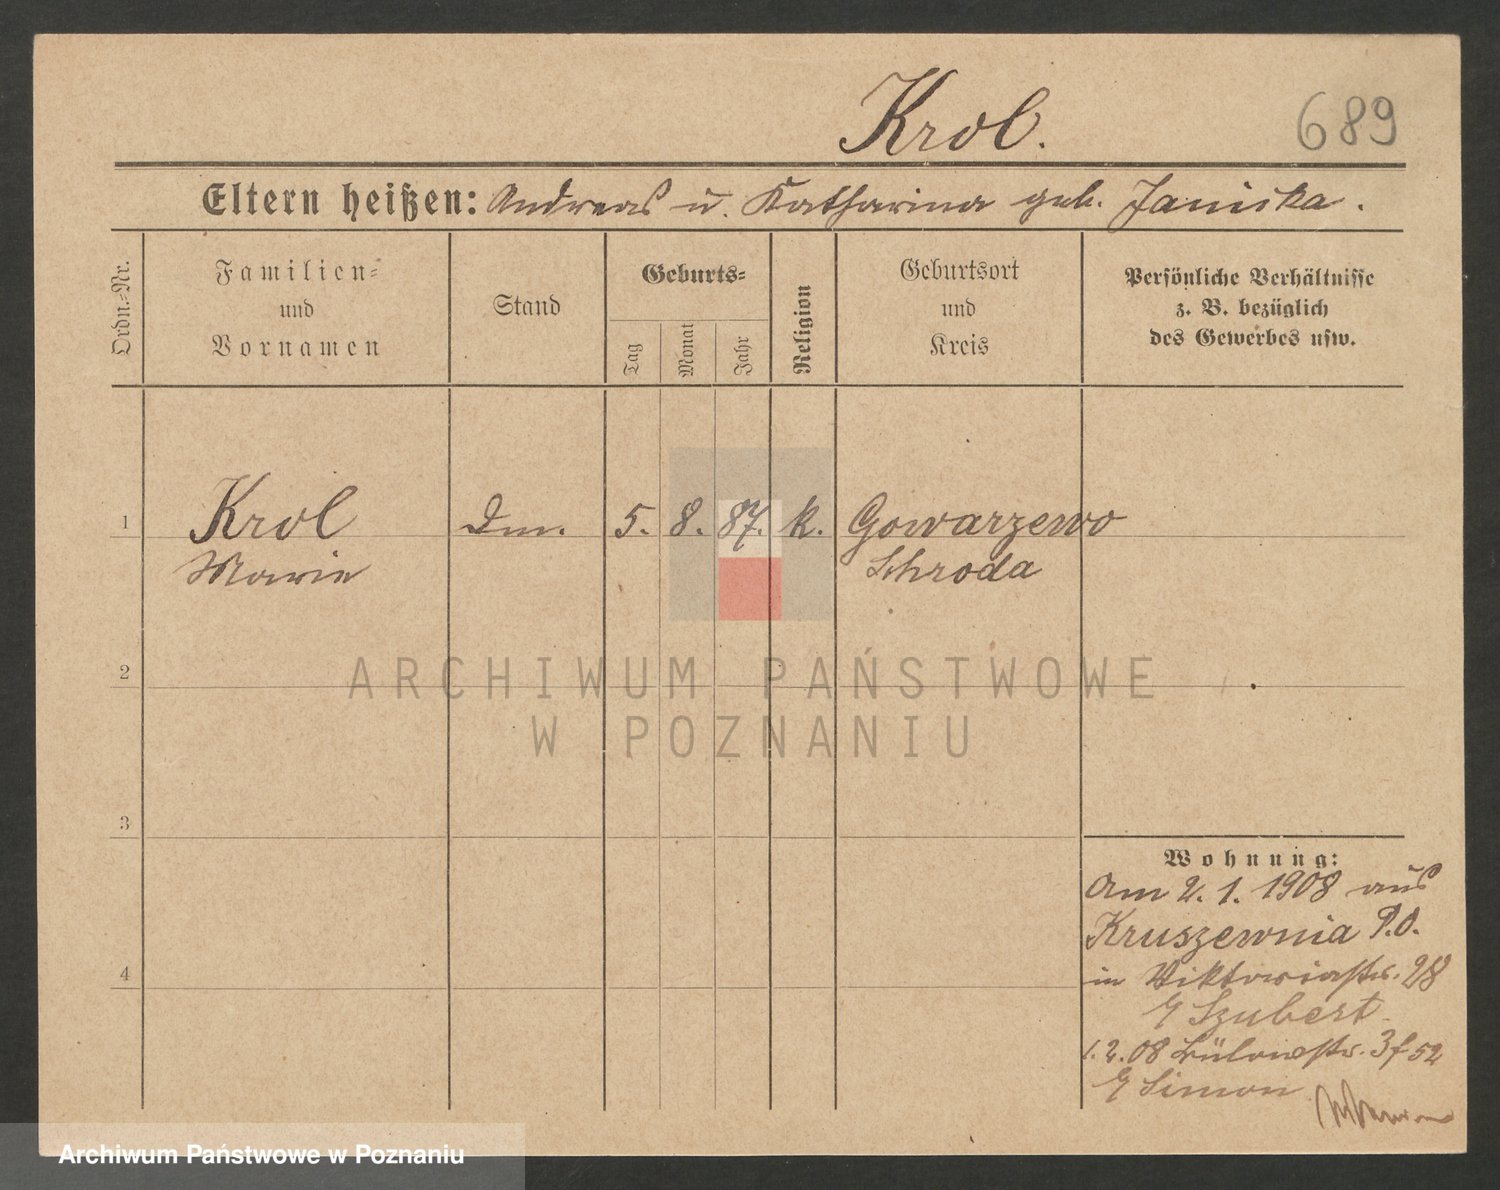 Krol.
689
Eltern heißen: Andreas u. Katharina geb. Janicka.
Ordn.-Nr.
Familien-
und
Vornamen
Stand
Geburts-
Tag
Monat
Jahr
Religion
Geburtsort
und
Kreis
Persönliche Verhältnisse
z. B. bezüglich
des Gewerbes usw.
1 Krol Dm. 5. 8. 87. k. Gowarzewo
Marie Schroda
2
ARCHIWUM PAŃSTWOWE
W POZNANIU
3
Wohnung:
Am 2. 1. 1908 aus
Kruszewnia P.O.
4
in Viktoriastr. 28
Szubert
1.2.08 Bülowstr. 3 f 52
Simon
Archiwum Państwowe w Poznaniu